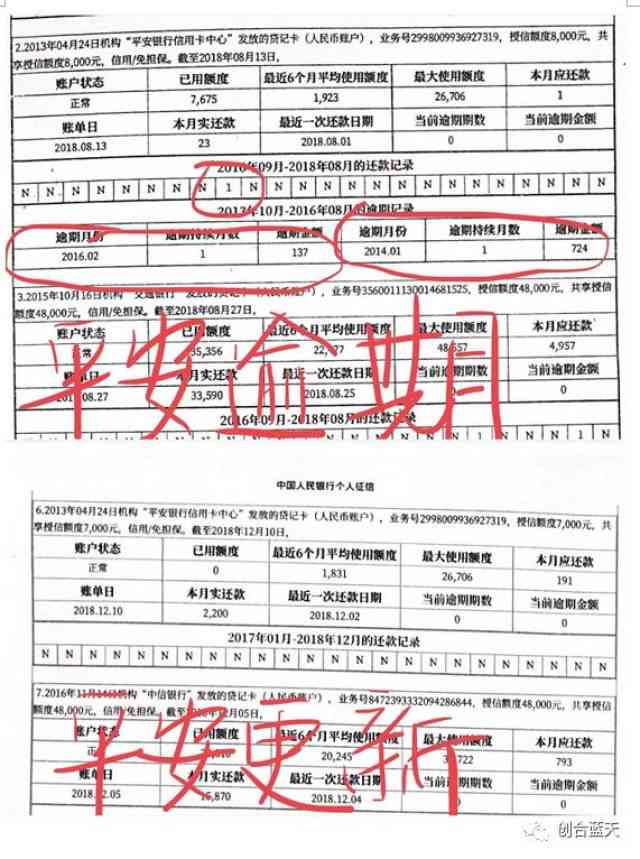 2.2013年04月24日机构“平安银行信用卡中心”发放的贷记卡（人民币账户），业务号2998009936927319，授信额度8,000元，共
享授信额度8,000元，信用/免担保。截至2018年08月13日，
账户状态 已用额度 最近6个月平均使用额度 最大使用额度 本月应还款
正常 7,675 1,923 26,706 1
账单日 本月实还款 最近一次还款日期 当前逾期期数 当前逾期金额
2018.08.13 23 2018.08.01 0 0
2016年09月-2018年08月的还款记录
N N N N N N N N 1 N N N N N N N N N N N N N N N
2013年10月-2016年08月的逾期记录
逾期月份 逾期持续月数 逾期金额 逾期月份 逾期持续月数 逾期金额
2016.02 1 137 2014.01 1 724
3.2015年10月16日机构“交通银行”发放的贷记卡（人民币账户），业务号3560011130014681525，授信额度48,000元，共享授信
额度48,000元，信用/免担保。截至2018年08月27日，
账户状态 已用额度 最近6个月平均使用额度 最大使用额度 本月应还款
正常 35,356 4,957
账单日 本月实还款 最近一次还款日期 当前逾期期数 当前逾期金额
2018.08.27 33,590 2018.08.25 0 0
2016年09月-2018年08月的还款记录
平安逾期
中国人民银行个人征信
6.2013年04月24日机构“平安银行信用卡中心”发放的贷记卡（人民币账户），业务号2998009936927319，授信额度7,000元，共
享授信额度7,000元，信用/免担保。截至2018年12月10日，
账户状态 已用额度 最近6个月平均使用额度 最大使用额度 本月应还款
正常 0 1,831 26,706 191
账单日 本月实还款 最近一次还款日期 当前逾期期数 当前逾期金额
2018.12.10 2,200 2018.12.02 0 0
2017年01月-2018年12月的还款记录
N N N N N N N N N N N N N N N N N N N N N N N N
7.2016年11月14日机构“中信银行”发放的贷记卡（人民币账户），业务号8472393332094286844，授信额度48,000元，共享授信
额度48,000元，信用/免担保。截至2018年12月05日，
账户状态 已用额度 最近6个月平均使用额度 最大使用额度 本月应还款
正常 20,245 793
账单日 本月实还款 最近一次还款日期 当前逾期期数 当前逾期金额
2018.12.05 15,870 2018.12.04 0 0
平安更新
创合蓝天